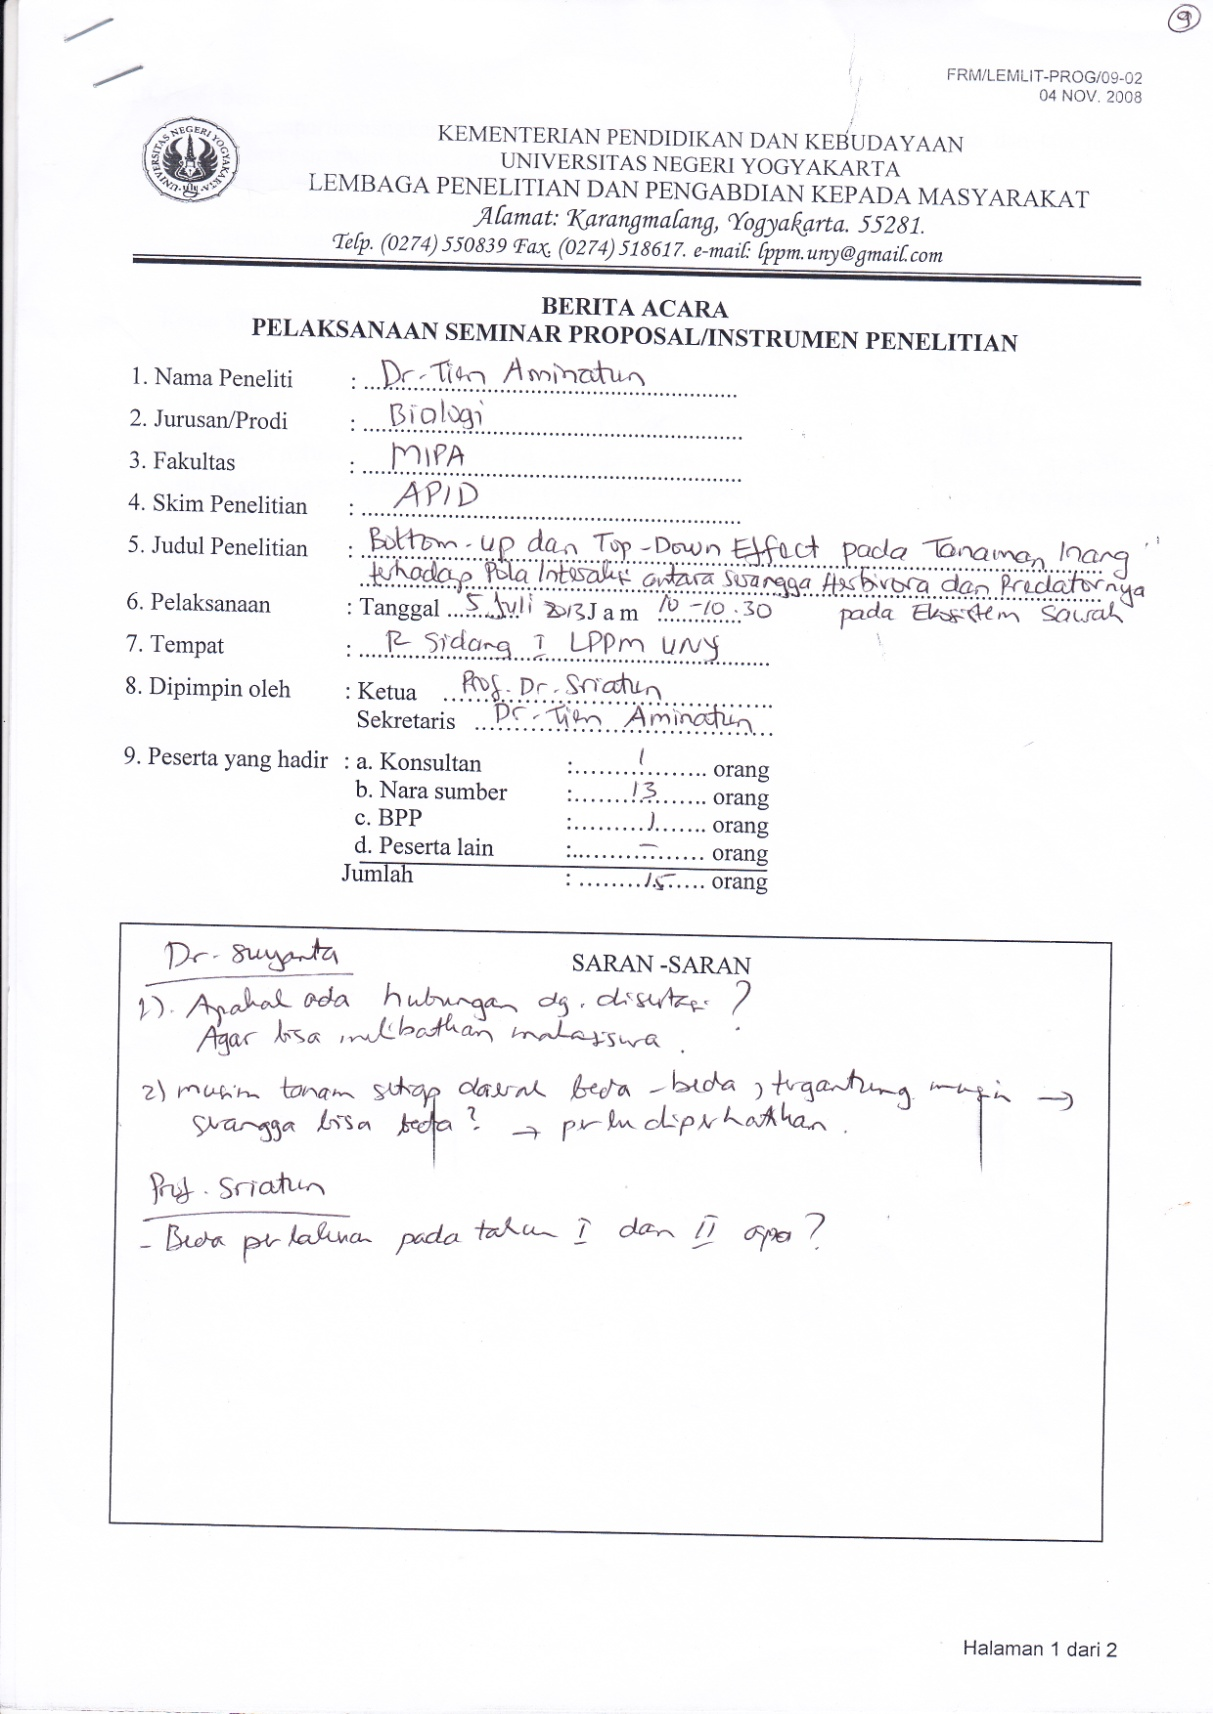 9
FRM/LEMLIT-PROG/09-02
04 NOV. 2008
UNIVERSITAS NEGERI YOGYAKARTA
UNY
KEMENTERIAN PENDIDIKAN DAN KEBUDAYAAN
UNIVERSITAS NEGERI YOGYAKARTA
LEMBAGA PENELITIAN DAN PENGABDIAN KEPADA MASYARAKAT
Alamat: Karangmalang, Yogyakarta. 55281.
Telp. (0274) 550839 Fax. (0274) 518617. e-mail: lppm.uny@gmail.com
BERITA ACARA
PELAKSANAAN SEMINAR PROPOSAL/INSTRUMEN PENELITIAN
1. Nama Peneliti : Dr. Tien Aminatun
2. Jurusan/Prodi : Biologi
3. Fakultas : MIPA
4. Skim Penelitian : APID
5. Judul Penelitian : Bottom-up dan Top-Down Effect pada Tanaman Inang
terhadap Pola Interaksi antara Serangga Herbivora dan Predatornya
pada Ekosistem Sawah
6. Pelaksanaan : Tanggal 5 Juli 2013 Jam 10-10.30
7. Tempat : R Sidang I LPPM UNY
8. Dipimpin oleh : Ketua Prof. Dr. Sriatun
Sekretaris Dr. Tien Aminatun
9. Peserta yang hadir : a. Konsultan : 1 orang
b. Nara sumber : 13 orang
c. BPP : 1 orang
d. Peserta lain : – orang
Jumlah : 15 orang
Dr. Suyanta
SARAN -SARAN
1). Apakah ada hubungan dg. disertasi ?
Agar bisa melibatkan mahasiswa.
2) musim tanam setiap daerah beda-beda, tergantung musim →
serangga bisa beda? → perlu diperhatikan.
Prof. Sriatun
- Beda perlakuan pada tahun I dan II apa?
Halaman 1 dari 2